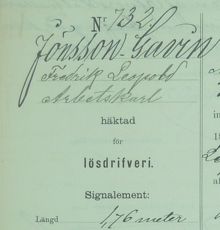 Nr 732.
Jönsson-Gavin
Fredrik Leopold
Arbetskarl
häktad
för
lösdrifveri.
Signalement:
Längd 1,76 meter